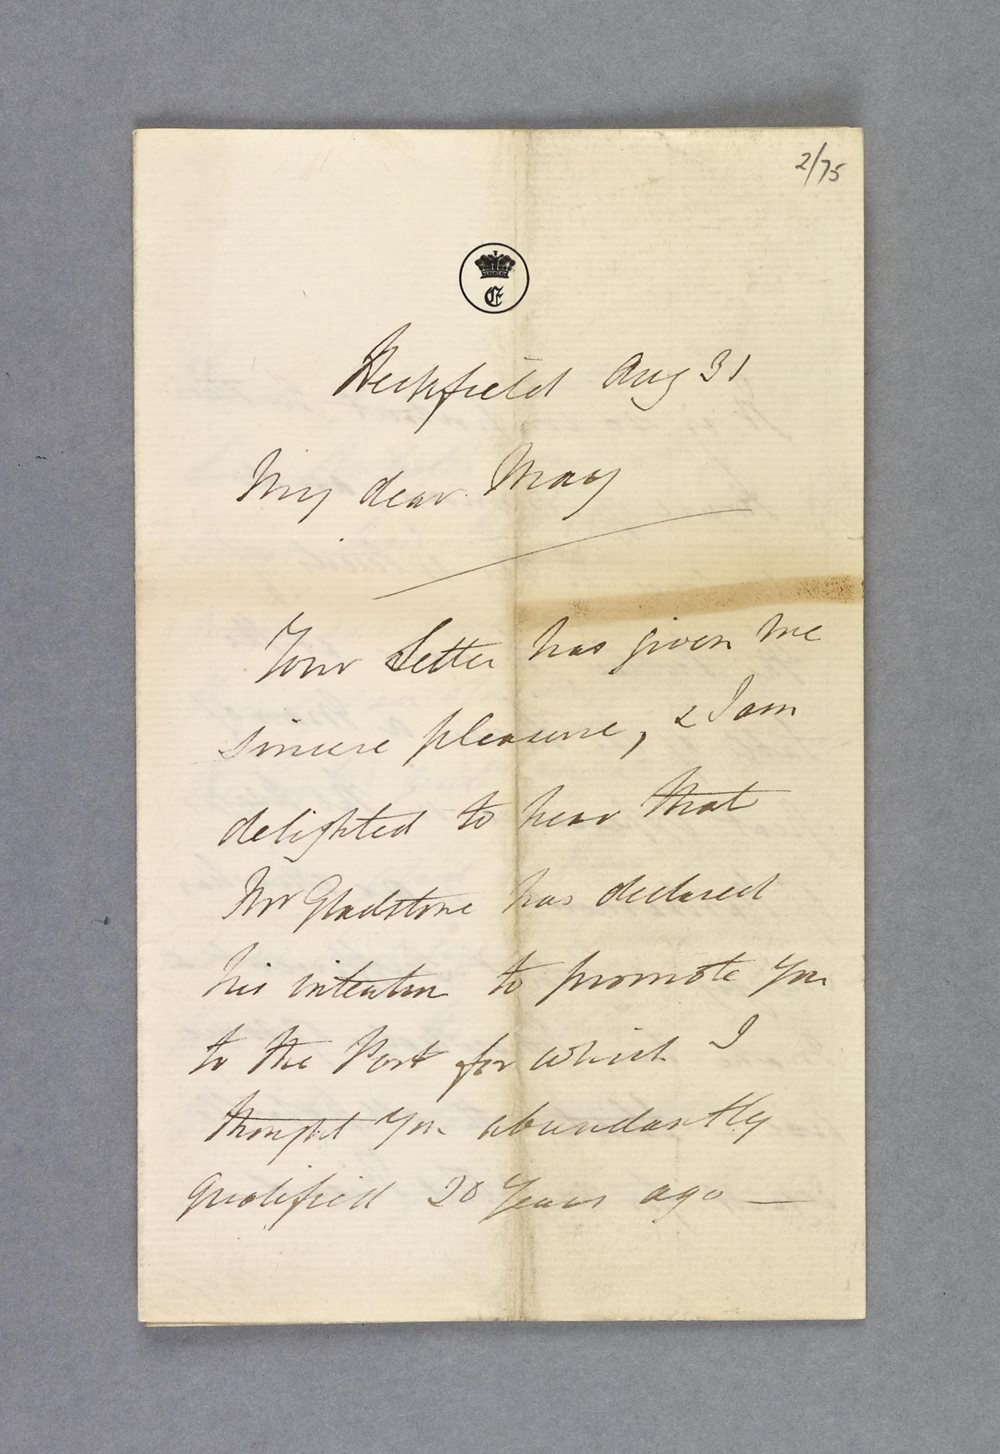 2/75
E
Heckfield Aug 31
My dear May
Your Letter has given me
sincere pleasure, & I am
delighted to hear that
Mr Gladstone has declared
his intention to promote you
to the Post for which I
thought you abundantly
qualified 20 years ago —